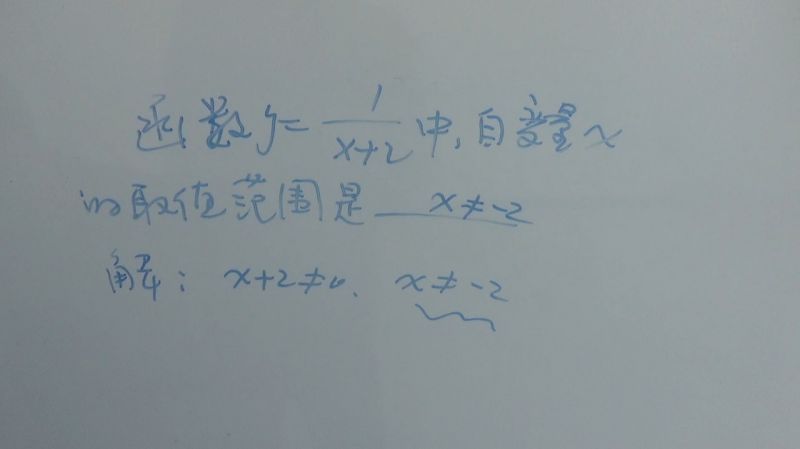 函数y=1/(x+2)中,自变量x
的取值范围是 x≠-2
解: x+2≠0. x≠-2